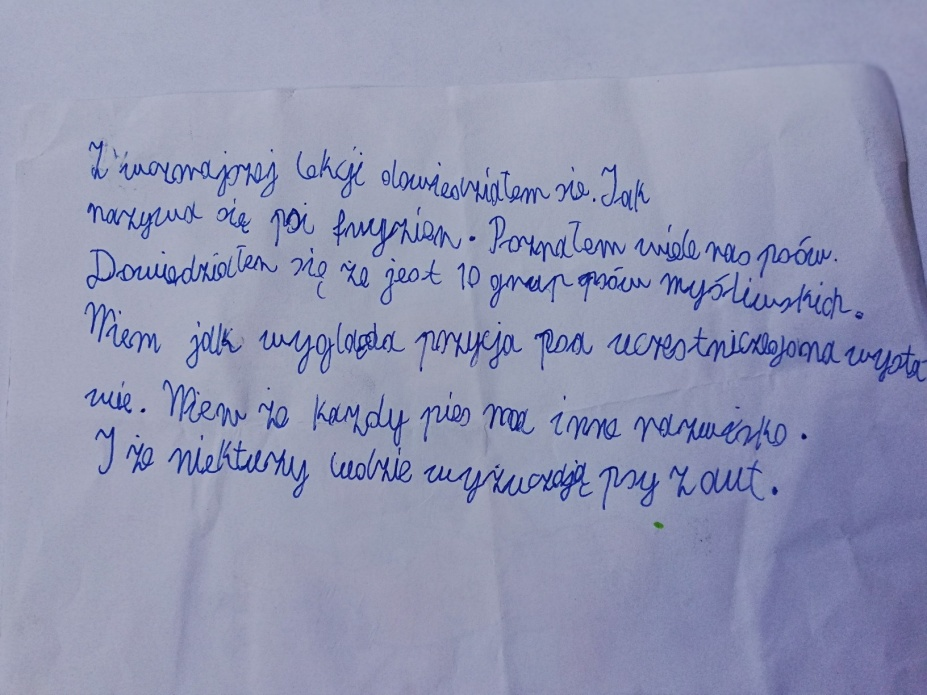 Z wczorajszej lekcji dowiedziałem sie. Jak
nazywa się psi fryzien. Poznałem wiele ras psów.
Dowiedziałem się że jest 10 grup psów myśliwskich.
Wiem jak wygląda pozycja psa na wysta
wie. Wiem że każdy pies ma inne nazwisko.
I że niektuzy ludzie wyżucają psy z aut.